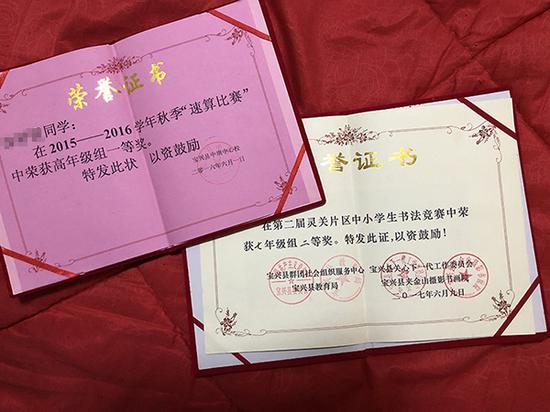 荣誉证书
同学：
在2015——2016学年秋季“速算比赛”
中荣获高年级组一等奖。
特发此状，以资鼓励
二〇一六年六月一日
誉证书
在第二届灵关片区中小学生书法竞赛中荣
获七年级组二等奖。特发此证，以资鼓励！
宝兴县群团社会组织服务中心 宝兴县关心下一代工作委员会
宝兴县教育局 宝兴县夹金山摄影书画院
〇一七年六月九日